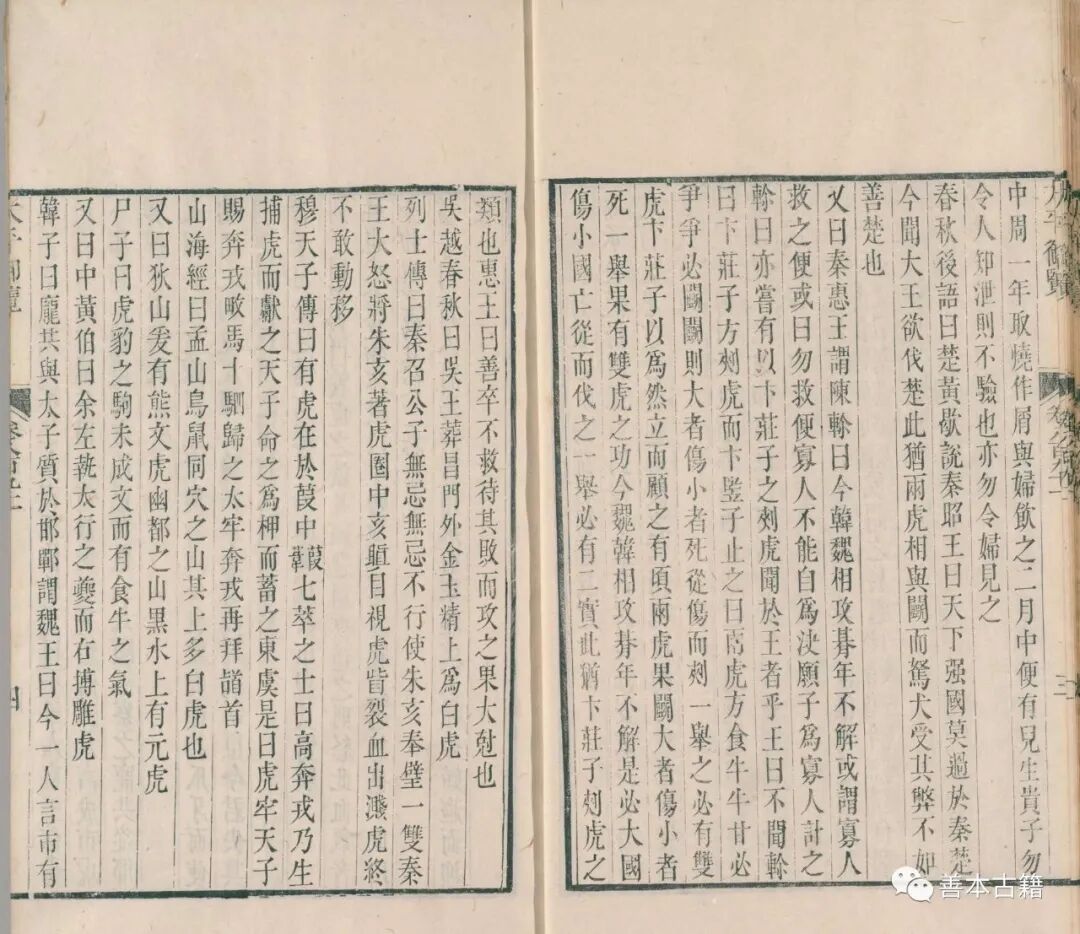 中周一年取燒作屑與婦飲之二月中便有兒生貴子勿
令人知泄則不驗也亦勿令婦見之
春秋後語曰楚黃歇說秦昭王曰天下强國莫過於秦楚
今聞大王欲伐楚此猶兩虎相與鬬而駑犬受其弊不如
善楚也
又曰秦惠王謂陳軫曰今韓魏相攻朞年不解或謂寡人
救之便或曰勿救便寡人不能自為決願子為寡人計之
軫曰亦嘗有以卞莊子之刺虎聞於王者乎王曰不聞軫
曰卞莊子方刺虎而卞豎子止之曰兩虎方食牛牛甘必
爭爭必鬬鬬則大者傷小者死從傷而刺一舉之必有雙
虎卞莊子以為然立而顧之有頃兩虎果鬬大者傷小者
死一舉果有雙虎之功今魏韓相攻朞年不解是必大國
傷小國亡從而伐之一舉必有二實此猶卞莊子刺虎之
類也惠王曰善卒不救待其敗而攻之果大尅也
吳越春秋曰吳王葬昌門外金玉精上為白虎
列士傳曰秦召公子無忌無忌不行使朱亥奉璧一雙秦
王大怒將朱亥著虎圈中亥瞋目視虎眥裂血出濺虎終
不敢動移
穆天子傳曰有虎在於葭中七萃之士曰高奔戎乃生
捕虎而獻之天子命之為柙而蓄之東虞是曰虎牢天子
賜奔戎畋馬十駟歸之太牢奔戎再拜䭫首
山海經曰孟山鳥鼠同穴之山其上多白虎也
又曰狄山爰有熊文虎幽都之山黑水上有元虎
尸子曰虎豹之駒未成文而有食牛之氣
又曰中黃伯曰余左執太行之夔而右搏雕虎
韓子曰龐共與太子質於邯鄲謂魏王曰今一人言市有
太平御覽
三
四
善本古籍